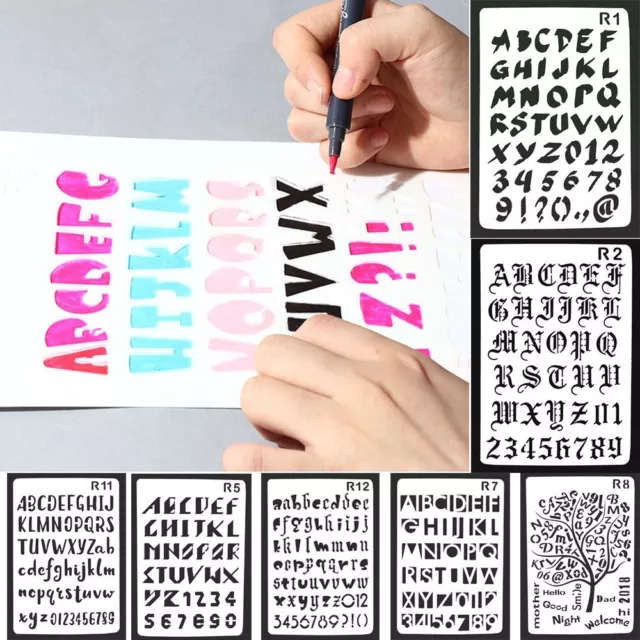 ABCDEFG
HIJKLM
NOPQRS
UVWX
Z?!
R1
ABCDEF
GHIJKL
MNOPQ
RSTUVW
XYZ012
345678
9!?().,@
R2
ABCDEF
GHIJKL
MNOPQ
RSTUV
WXYZ01
23456789
R11
ABCDEFGHIJ
KLMNOPQRS
TUVWXYZab
cdefghijklm
nopqrstuvw
xyz0123456789
R5
ABCDEF
GHIJKL
MNOPQR
STUVWX
YZ1234
567890
R12
aabbcddee
ffgghhiijj
kkllmmnn
ooppqqrr
sttuuvvww
xxyyzz012
3456789?!()
R7
ABCDEF
GHIJKL
MNOPQ
RSTUVW
XYZ012
3456789
R8
mother
Hello
Good
Night
Smile
Dad
Welcome
hi
2018